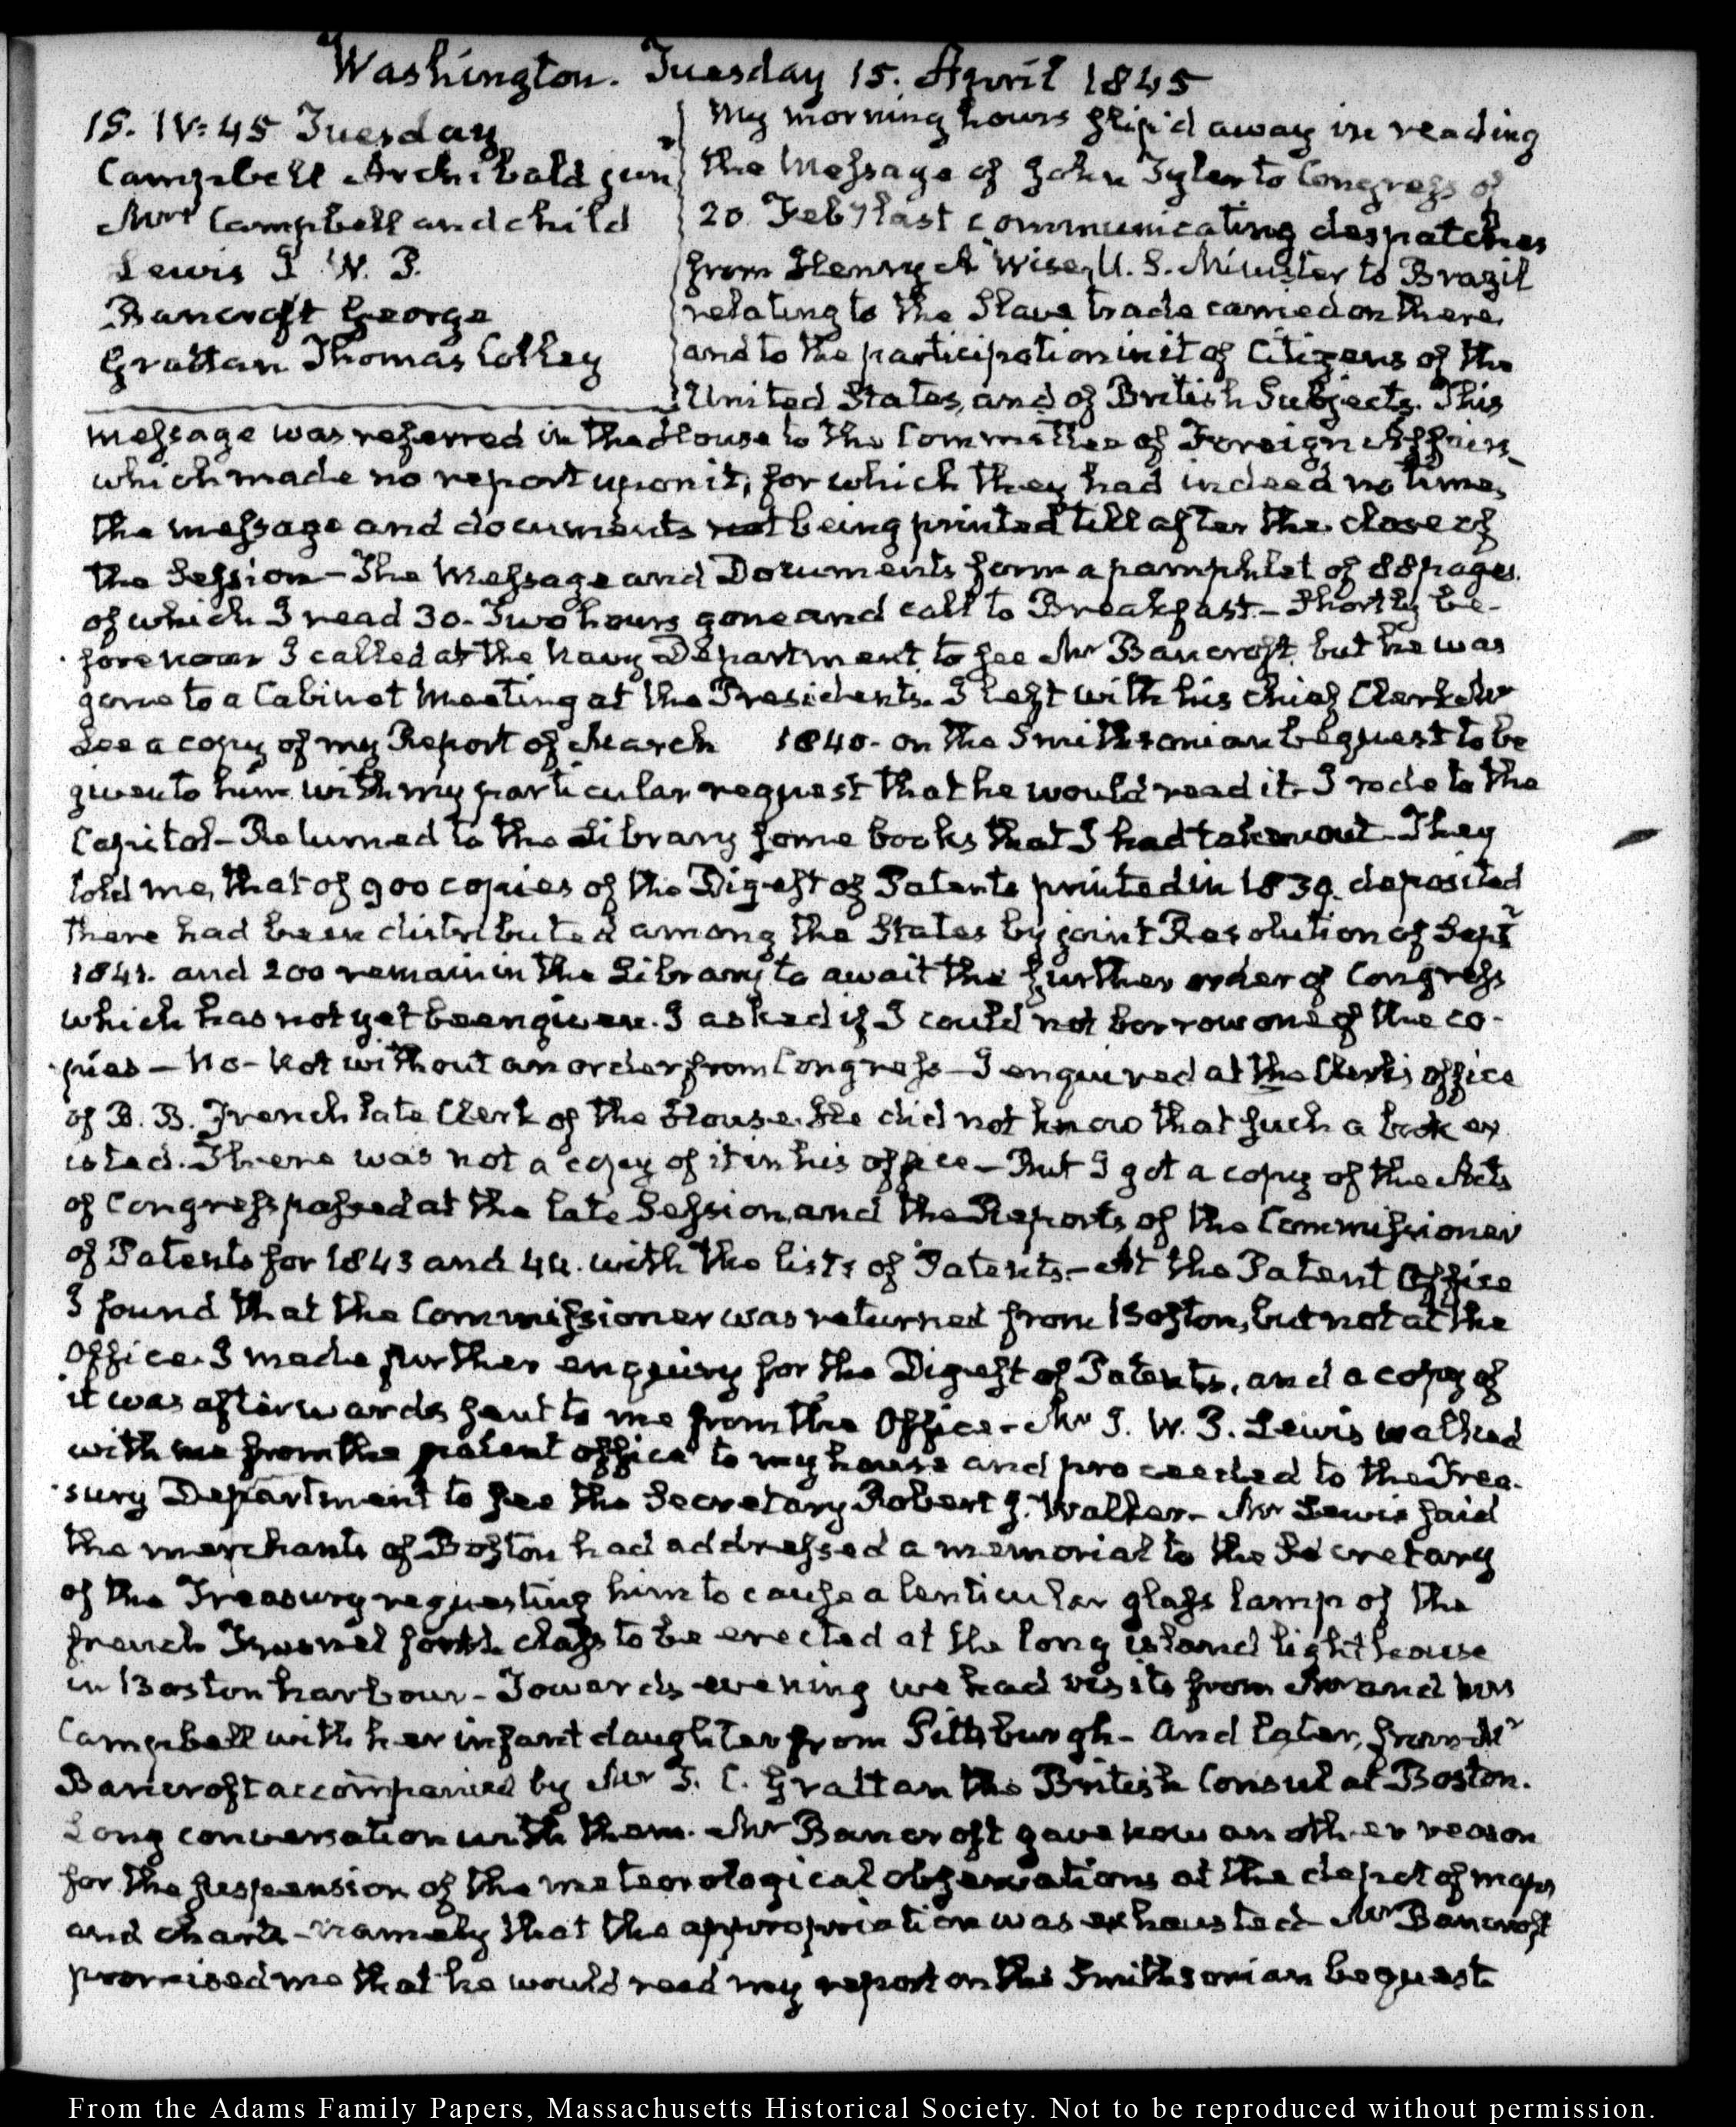 Washington. Tuesday 15. April 1845
15. IV: 45 Tuesday
Campbell Archibald jun.r
Mrs Campbell and child
Lewis I. W. P.
Bancroft George
Grattan Thomas Colley
My morning hours slip'd away in reading
the Message of John Tyler to Congress of
20 Feby last communicating despatches
from Henry A Wise, U. S. Minister to Brazil
relating to the Slave trade carried on there,
and to the participation in it of Citizens of the
United States, and of British Subjects. This
message was referred in the House to the Committee of Foreign Affairs,
which made no report upon it, for which they had indeed no time,
the message and documents not being printed till after the close of
the Session—The Message and Documents form a pamphlet of 88 pages.
of which I read 30. Two hours gone and call to Breakfast.—Shortly be-
fore noon I called at the Navy Department, to see Mr Bancroft, but he was
gone to a Cabinet Meeting at the Presidents. I left with his chief Clerk Mr
See a copy of my Report of March 1840. on the Smithsonian bequest to be
given to him with my particular request that he would read it. I rode to the
Capitol—Returned to the Library some books that I had taken out—They
told me, that of 900 copies of the Digest of Patents printed in 1839. deposited
there had been distributed among the States by joint Resolution of Septr
1841. and 200 remain in the Library to await the further order of Congress
which has not yet been given. I asked if I could not borrow one of the co-
pies—No—Not without an order from Congress—I enquired at the Clerk's office
of B. B. French late Clerk of the House. He did not know that such a book ex
isted. There was not a copy of it in his office—But I got a copy of the Acts
of Congress passed at the late Session, and the Reports of the Commissioner
of Patents for 1843 and 44. with the lists of Patents.—At the Patent Office
I found that the Commissioner was returned from Boston, but not at the
Office. I made further enquiry for the Digest of Patents, and a copy of
it was afterwards sent to me from the Office—Mr I. W. P. Lewis walked
with me from the patent office to my house and proceeded to the Trea-
sury Department to see the Secretary Robert J. Walker—Mr Lewis said
the merchants of Boston had addressed a memorial to the Secretary
of the Treasury requesting him to cause a lenticular glass lamp of the
french Fresnel fourth class to be erected at the long island light house
in Boston harbour—Towards evening we had visits from Mr and Mrs
Campbell with her infant daughter from Pittsburgh—And later, from Mr
Bancroft accompanied by Mr T. C. Grattan the British Consul at Boston.
Long conversation with them. Mr Bancroft gave now another reason
for the suspension of the meteorological observations at the depot of maps
and charts—namely that the appropriation was exhausted—Mr Bancroft
promised me that he would read my report on the Smithsonian bequest
From the Adams Family Papers, Massachusetts Historical Society. Not to be reproduced without permission.